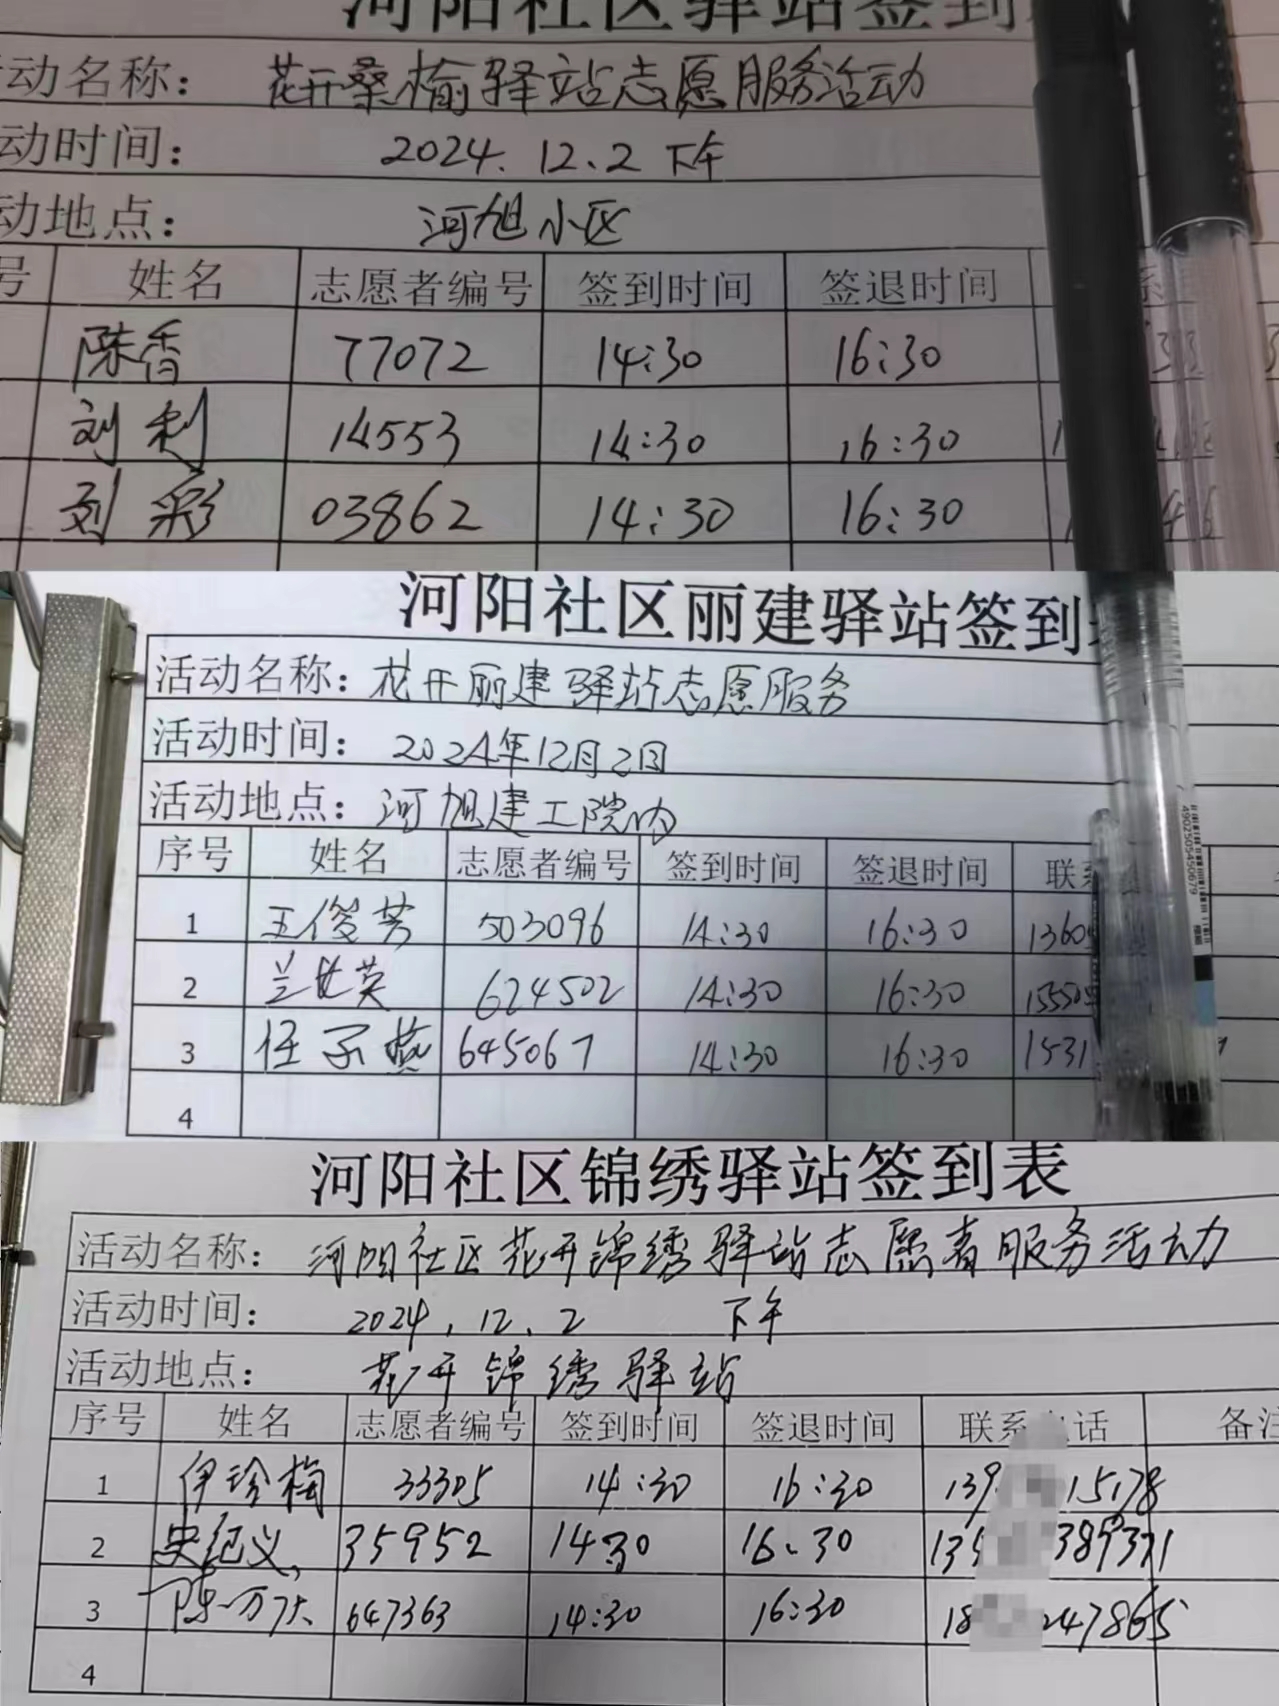 河阳社区驿站签到
动名称： 花开桑榆驿站志愿服务活动
动时间： 2024.12.2 下午
动地点： 河旭小区
号 姓名 志愿者编号 签到时间 签退时间 系
陈香 77072 14:30 16:30
刘利 14553 14:30 16:30
刘彩 03862 14:30 16:30
河阳社区丽建驿站签到
活动名称： 花开丽建驿站志愿服务
活动时间： 2024年12月2日
活动地点： 河旭建工院内
序号 姓名 志愿者编号 签到时间 签退时间 联
1 王俊芳 503096 14:30 16:30 1360
2 兰 英 624502 14:30 16:30 15550
3 任子燕 645067 14:30 16:30 1531
4
4902505450679
河阳社区锦绣驿站签到表
活动名称： 河阳社区花开锦绣驿站志愿者服务活动
活动时间： 2024.12.2 下午
活动地点： 花开锦绣驿站
序号 姓名 志愿者编号 签到时间 签退时间 联系 话 备注
1 伊珍梅 33305 14:30 16:30 139 15178
2 史纪义 35952 14:30 16.30 139 389371
3 陈万庆 647363 14:30 16:30 18 247865
4